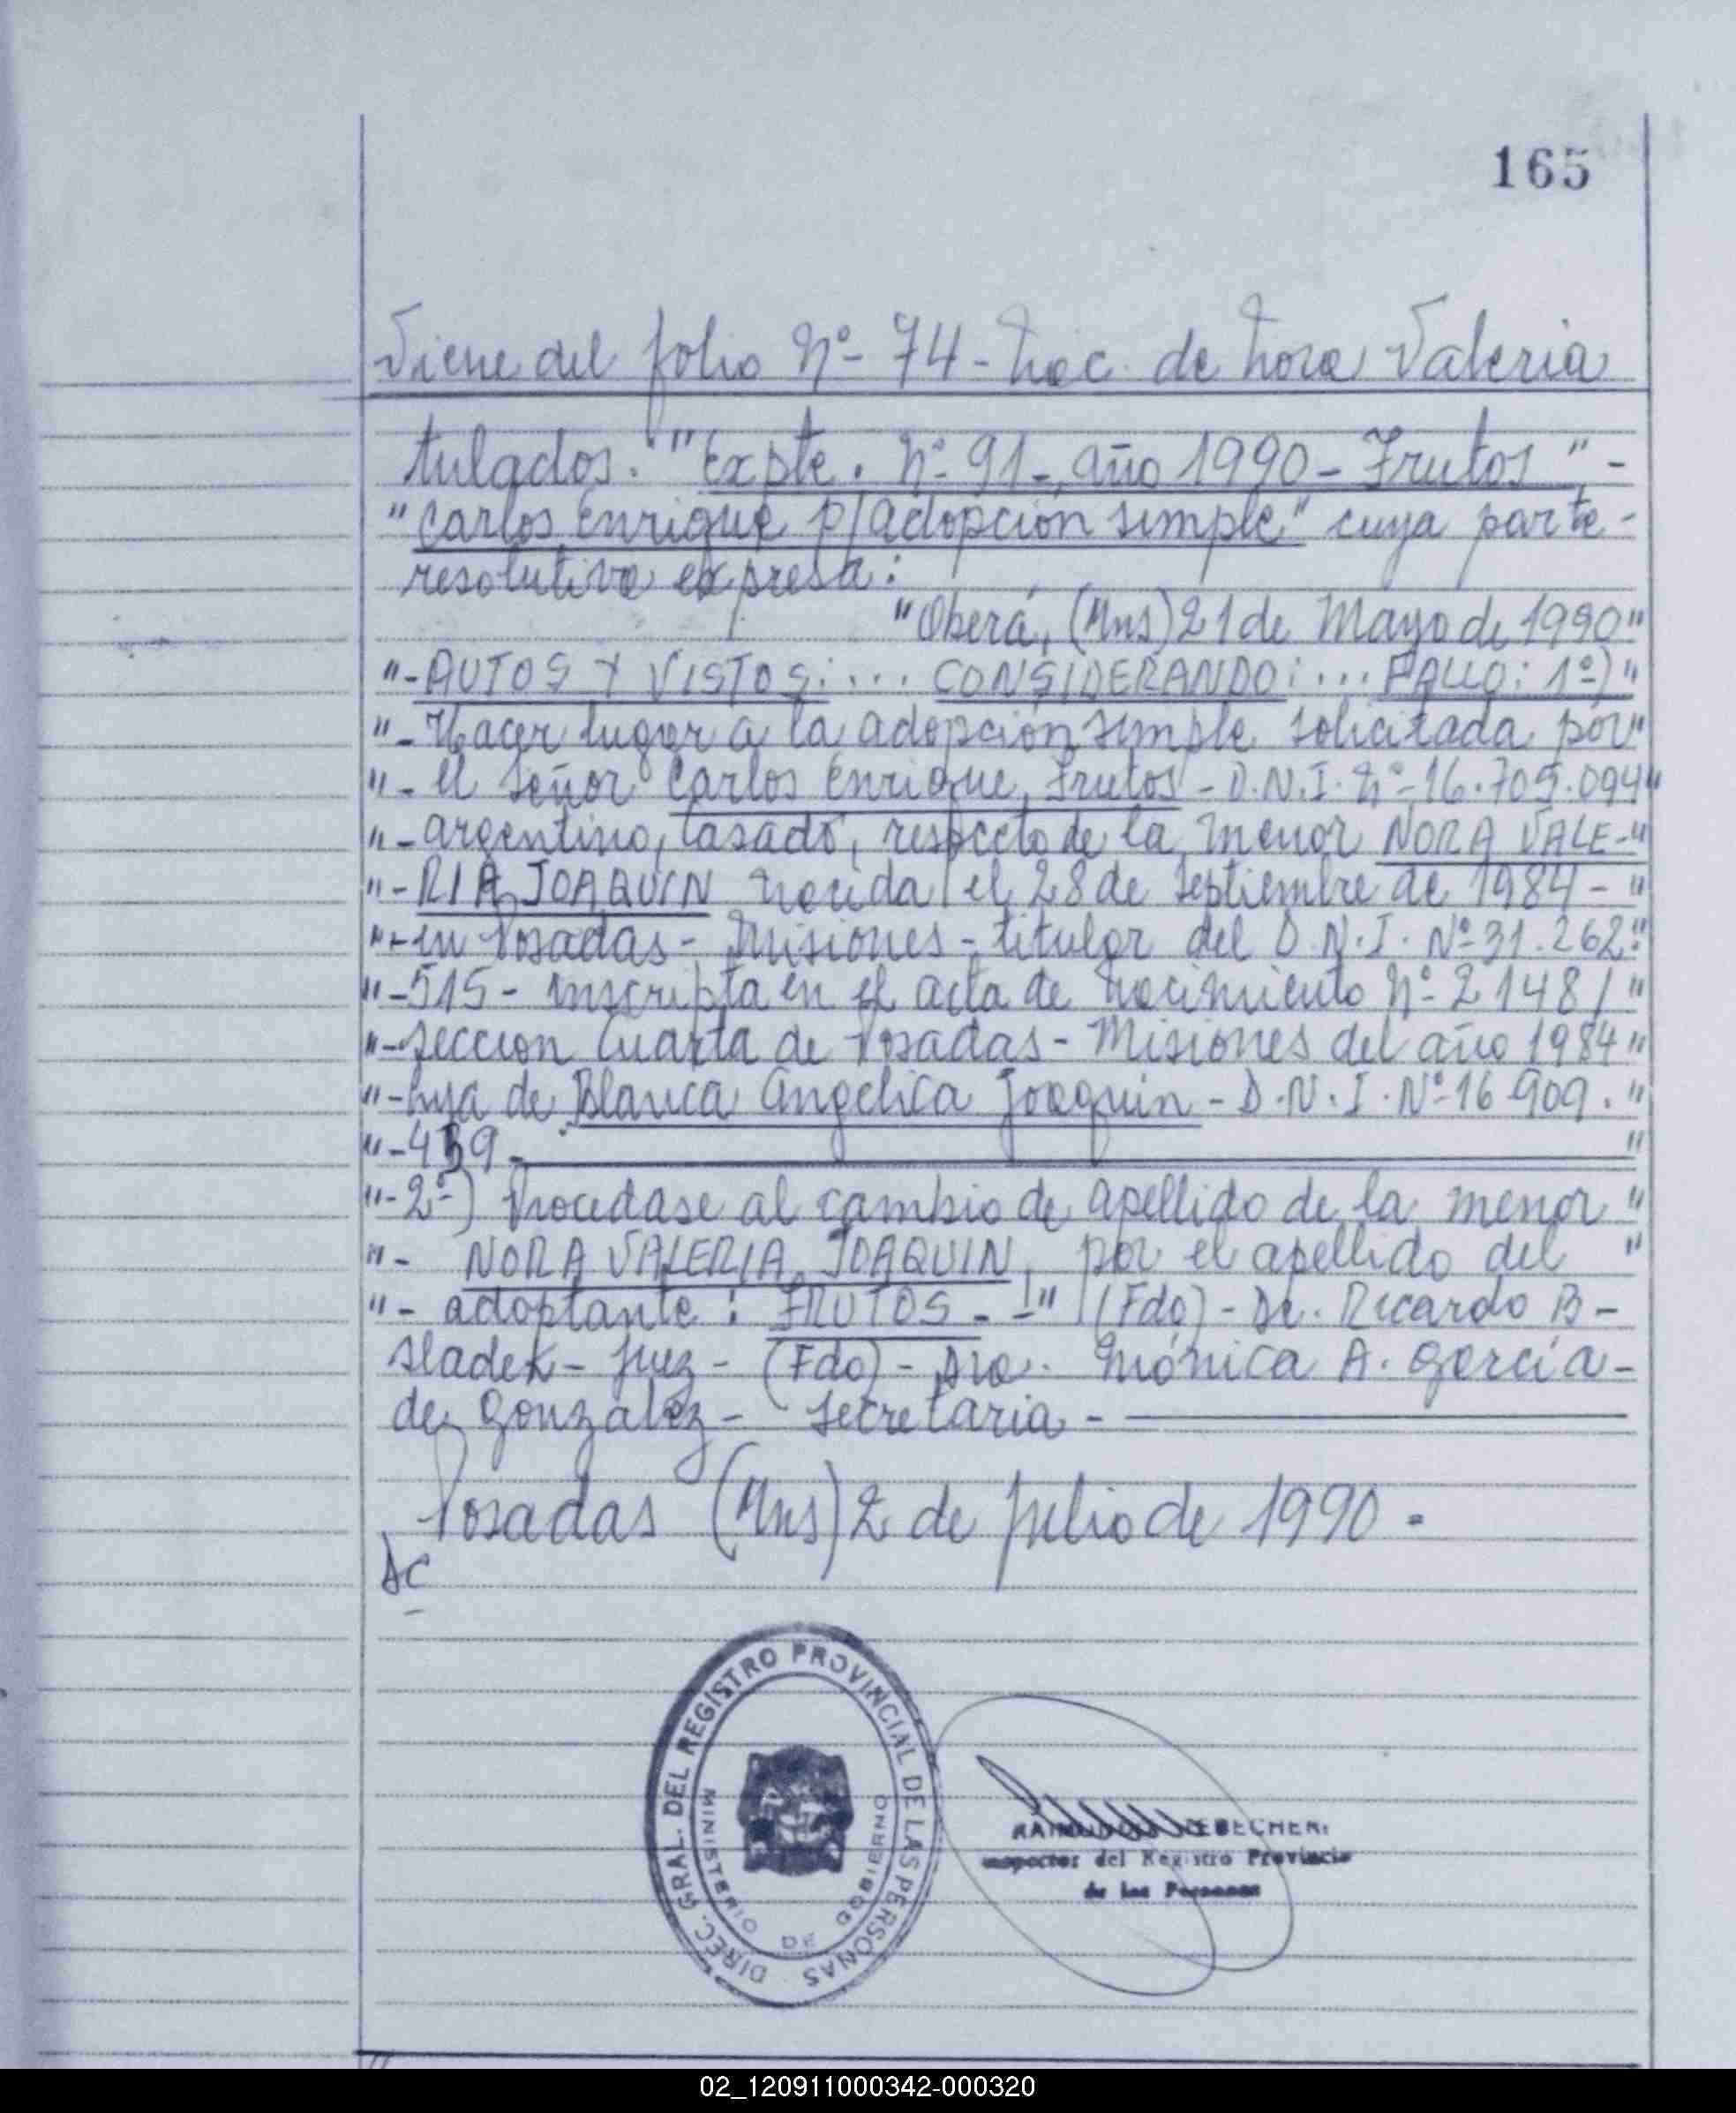 165
Viene del folio Nº- 74 - Nac. de Nora Valeria
tulados. "Expte. Nº 91 - año 1990 - Frutos" -
"Carlos Enrique p/adopción simple" cuya parte -
resolutiva expresa:
"Oberá, (Mns) 21 de Mayo de 1990"
"- AUTOS Y VISTOS: ... CONSIDERANDO: ... FALLO: 1º)"
"- Hacer lugar a la adopción simple solicitada por"
"- el Señor Carlos Enrique Frutos - D.N.I. Nº- 16.705.094"
"- argentino, casado, respecto de la menor NORA VALE-"
"- RIA JOAQUIN nacida el 28 de Septiembre de 1984 - "
"- en Posadas - Misiones - titular del D.N.I. Nº 31.262."
"- 515 - inscripta en el acta de nacimiento Nº- 2148/ "
"- Seccion Cuarta de Posadas - Misiones del año 1984"
"- hija de Blanca Angelica Joaquin - D.N.I. Nº 16 909. "
"- 439 - "
"- 2º-) Procedase al cambio de apellido de la menor "
"- NORA VALERIA JOAQUIN, por el apellido del "
"- adoptante: FRUTOS - -" (Fdo) - Dr. Ricardo B -
Sladek - Juez - (Fdo) - Dra. Mónica A. García -
de González - Secretaria -
Posadas (Mns) 2 de Julio de 1990 -
DIREC. GRAL. DEL REGISTRO PROVINCIAL DE LAS PERSONAS
MINISTERIO DE GOBIERNO
Inspector del Registro Provincia
de las Personas
02_120911000342-000320